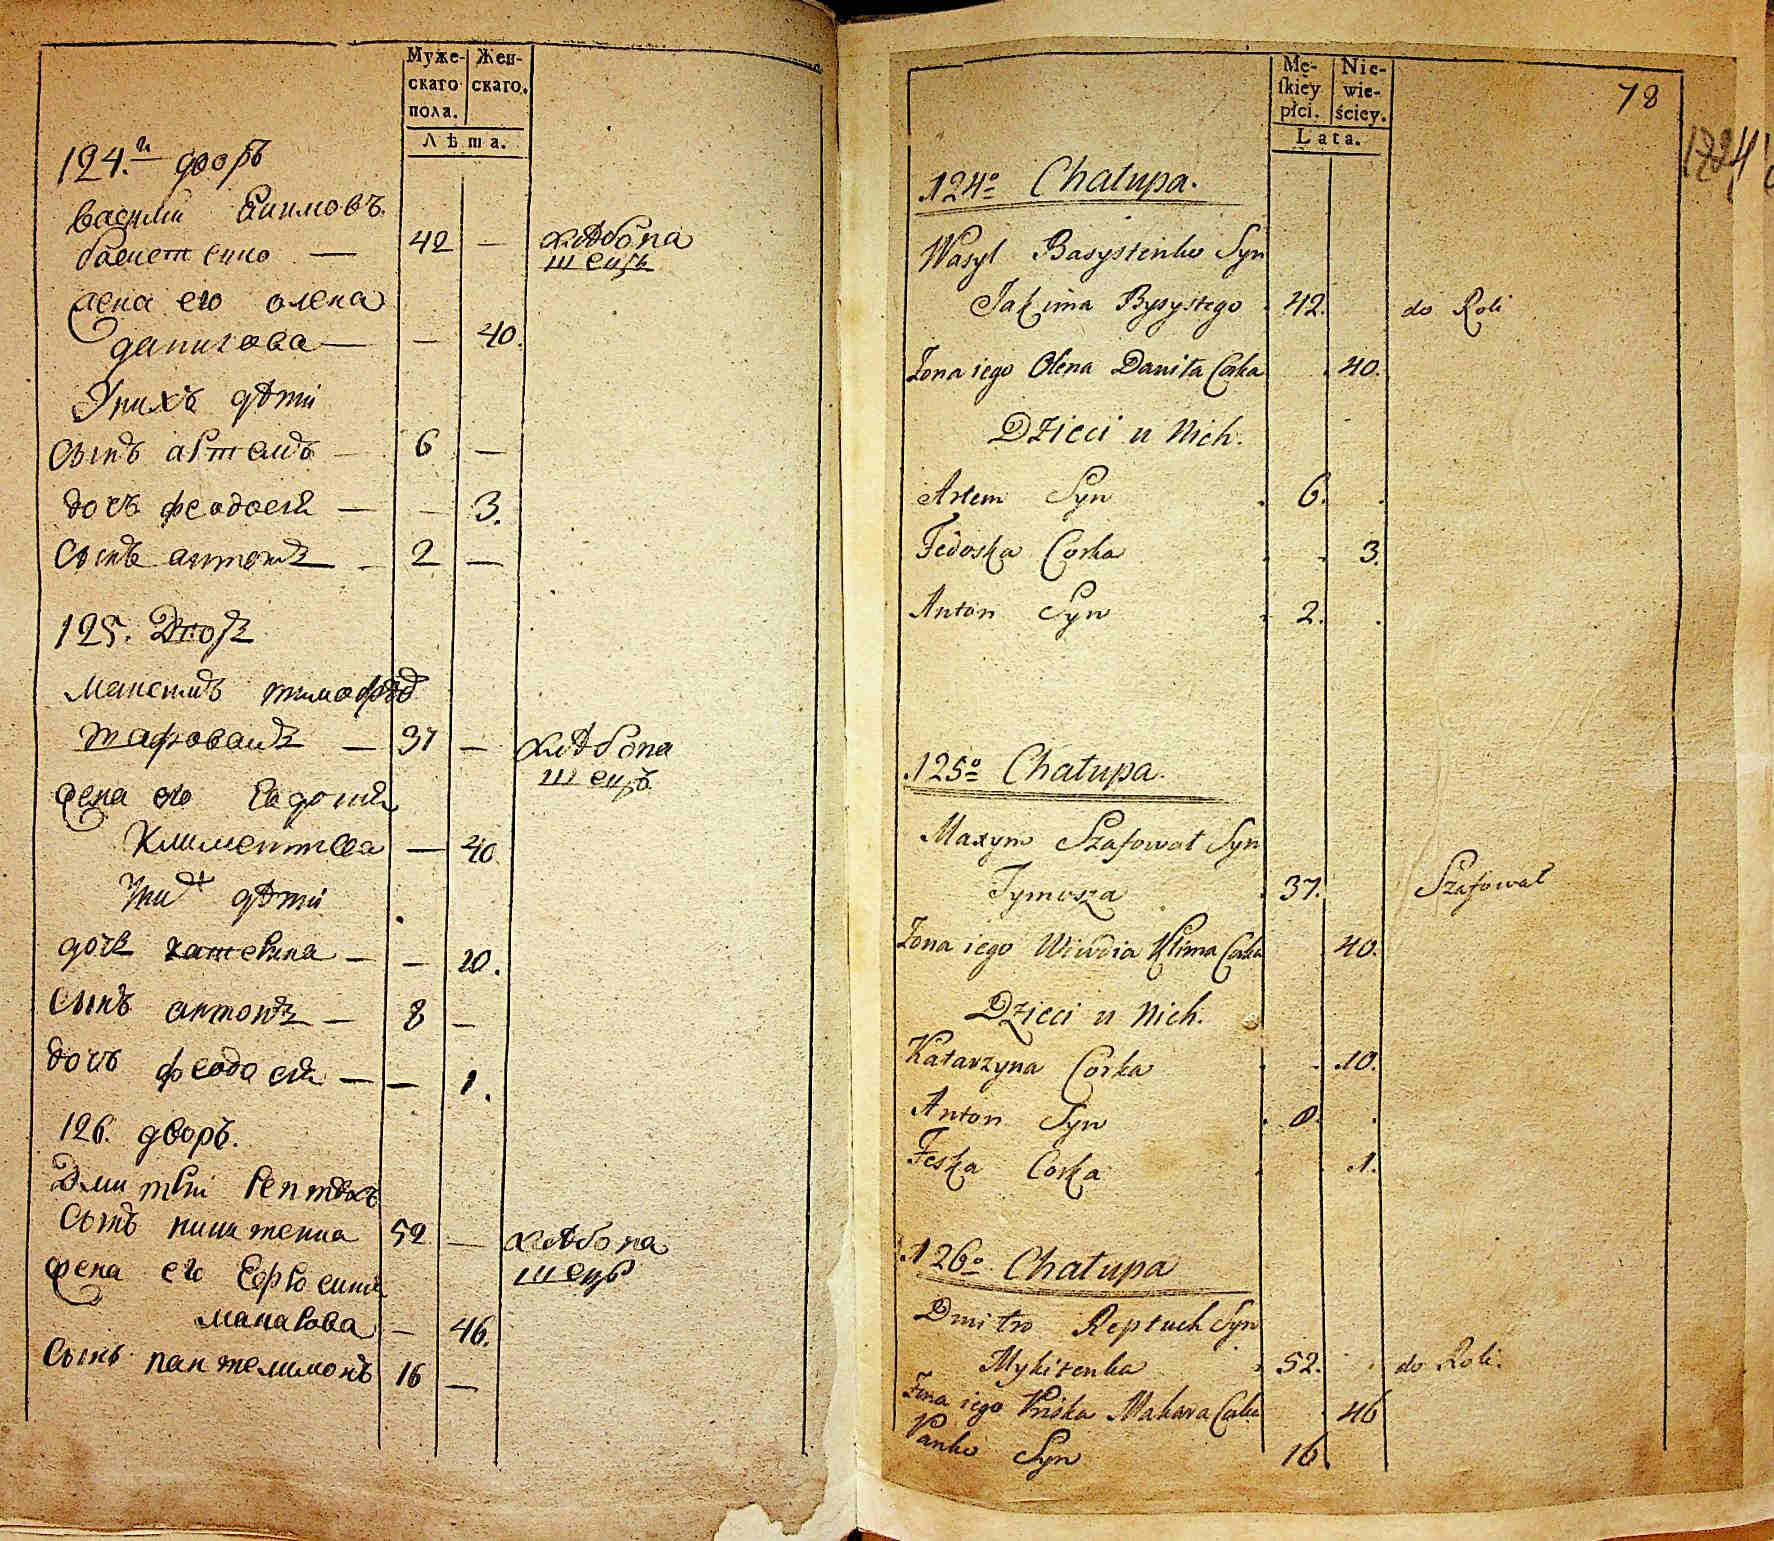 Муже-
скаго
пола.
Жен-
скаго.
Лѣта.
124.й дворъ
василии Екимовъ
басистенко — 42 — хлѣбопа
шецъ
жена его олена
данилова — — 40.
У нихъ дѣти
Сынъ артемъ — 6 —
дочь феодосия — — 3.
Сынъ антонъ — 2 —
125. Дворъ
Максимъ тимофѣев
шафовалъ — 37 — хлѣбопа
шецъ
жена его Евдокия
Климентиева — 40
У них дѣти
дочь катерина — — 10.
Сынъ антонъ — 8 —
дочь феодосия — — 1.
126. дворъ.
Дмитрiй Рептюхъ
Сынъ никитенка 52 — хлѣбопа
шецъ
жена его Ефросиния
макарова — 46.
Сынъ пантелимонъ 16 —
Mę-
ſkiey
płci.
Nie-
wie-
ściey.
Lata.
78
124º Chałupa.
Wasyl Basystenko Syn
Jakima Bysystego 42. do Roli
Żona iego Olena Daniła Corka 40.
Dzieci u Nich.
Artem Syn 6.
Fedoska Corka 3.
Anton Syn 2.
125º Chałupa.
Maxym Szafował Syn
Tymosza 37. Szafował
Żona iego Wiwdia Klima Corka 40.
Dzieci u Nich.
Katarzyna Corka 10.
Anton Syn 8.
Feska Corka 1.
126º Chałupa
Dmitro Reptuch Syn
Mykitenka 52. do Roli.
Żona iego Priska Makara Corka 46
Panko Syn 16